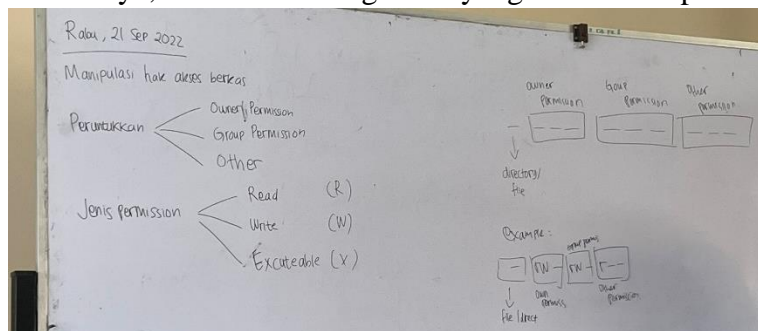 Rabu, 21 Sep 2022
Manipulasi hak akses berkas
Peruntukkan
Owner Permission
Group Permission
Other
Jenis Permission
Read (R)
Write (W)
Excuteable (X)
owner permission
Goup permission
Other permission
- --- --- ---
directory/
file
Example:
- rw- rw- r--
own
other
file/direct